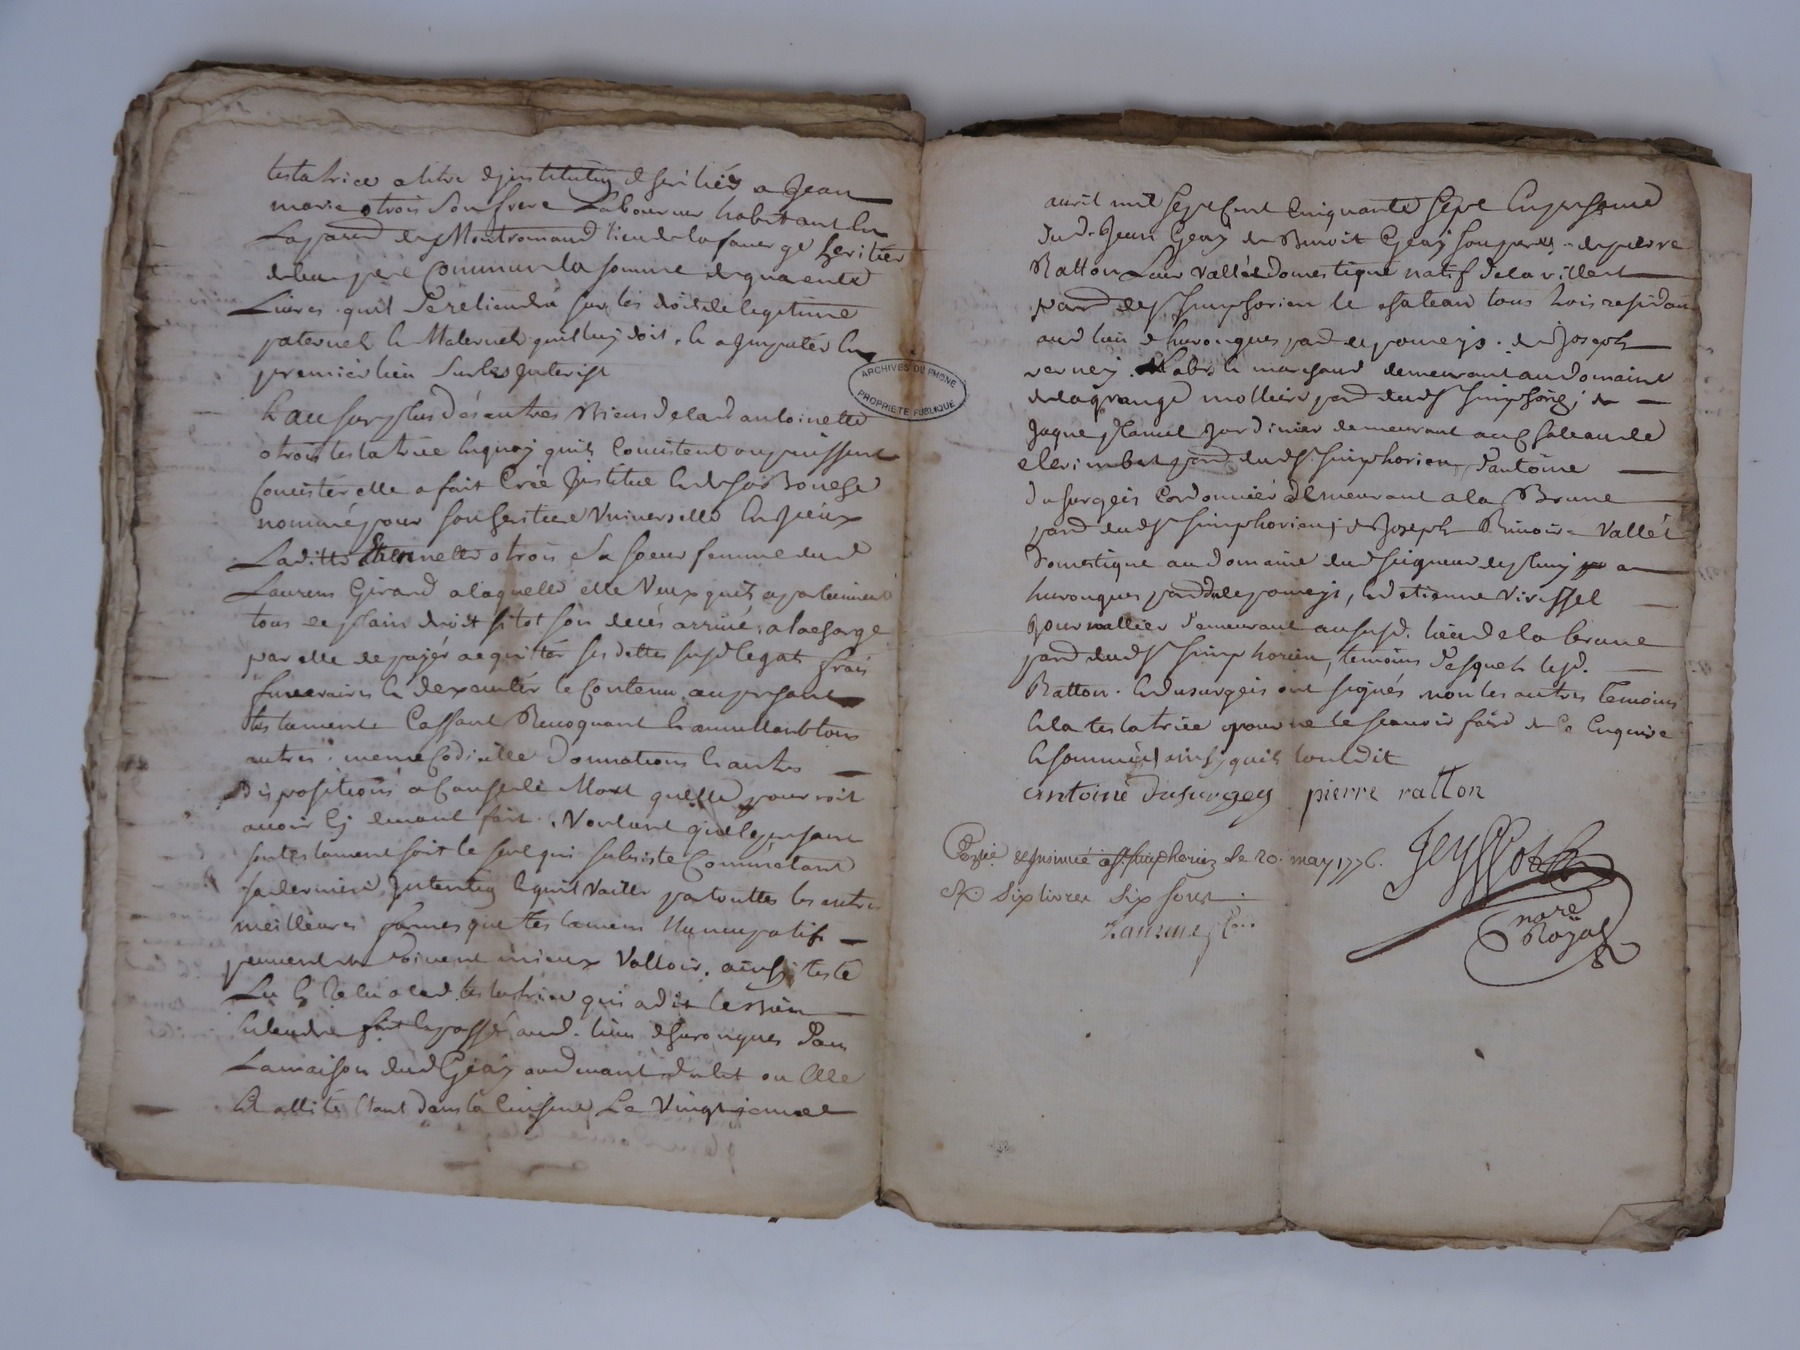 testatrice a titre d'institution d'heritier a Jean
marie otrois son frere Laboureur habitant en
La paroisse de Montromand lieu de la faverge heritier
de leur pere commun la somme de quarente
Livres quil se retiendra sur les droits de legitime
paternels et Maternels quil luy doit, et a imputer en
premier lieu sur les interist
Et au surplus des autres Biens de lad antoinette
otrois testatrice en quoy quils consistent ou puissent
Consister elle a fait Crée Institue et de sa Bouche
nommé pour son heritiere Universelle
Laditte otrois sa soeur femme dud
Laurens Girard a laquelle elle Veux quils apartiennent
tous de plain droit sitot son decés arrivé, a la charge
par elle de payér acquitter ses dettes susd legats frais
funeraires et dexecuter le Contenu au present
testament Cassant Revoquant et annullant tous
autres, meme Codicille Donnations et autres
Dispositions a Cause de Mort quelle pourroit
avoir cy devant fait. Voulant que le present
son testament soit le seul qui subsiste Comme etant
sa derniere Intention et quil Vaille par touttes les autres
meilleures formes que testamens Nuncupatifs
peuvent et doivent mieux Valloir. ainsi testé
Lu et Relu a lad. testatrice qui a dit le Bien
Entendre fait et passé aud. lieu d'hurongues Dans
La maison dud Geay au devant du lit ou Elle
Est allitée etant dans la Cuisine Le Vingt
avril mil sept Cent Cinquante sept En presence
Dud. Jean Geay de Benoit Geay son pere de pierre
Ratton Leur Vallet domestique natif de la villette
parr de St Simphorien le chateau tous trois residans
aud lieu d'hurongues parr de pomeys. de Joseph
verney. marchand demeurant au domaine
de la grange molliere parr dud St Simphorien, de
Jaque Jardinier demeurant au Chateau de
clerimbert parr dud St. Simphorien, D'antoine
Dusurgeis Cordonnier demeurant a la Brune
parr dud St Simphorien, de Joseph Benoit Vallet
Domestique au Domaine du Seigneur de a
hurongues parr de pomeys, et d'etienne Virissel
journallier demeurant au susd. lieu de la brune
parr dud St Simphorien, temoins Desquels lesd.
Ratton et Dusurgeis ont signés non les autres temoins
et la testatrice pour ne le scavoir faire de Ce Enquis
et sommés ainsy quils l'ont dit
antoine dusurgey pierre ratton
Controllé et Insinué a St Simphorien Le 20. may 1776.
R. Six livres Six sous
nore
Royal
ARCHIVES DU RHONE
PROPRIETE PUBLIQUE